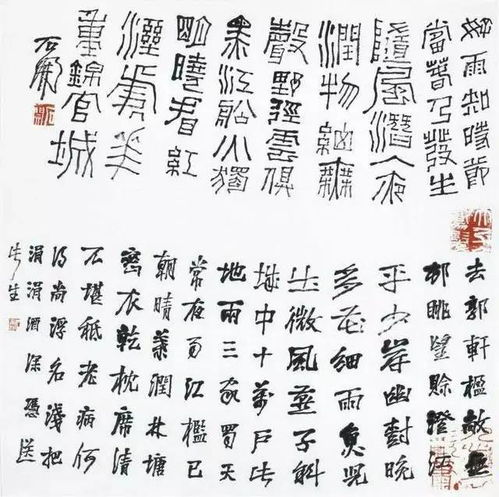 好雨知時節
當春乃發生
隨風潛入夜
潤物細無
聲野徑雲俱
黑江船火獨
明曉看紅
濕處花
重錦官城
石開
去郭軒楹敞無
邨眺望賒澄江
平少岸幽樹晚
多花細雨魚兒
出微風燕子斜
城中十萬戶此
地兩三家蜀天
常夜雨江檻已
朝晴葉潤林塘
密衣乾枕席清
不堪祗老病何
得尚浮名淺把
涓涓酒深憑送
此生